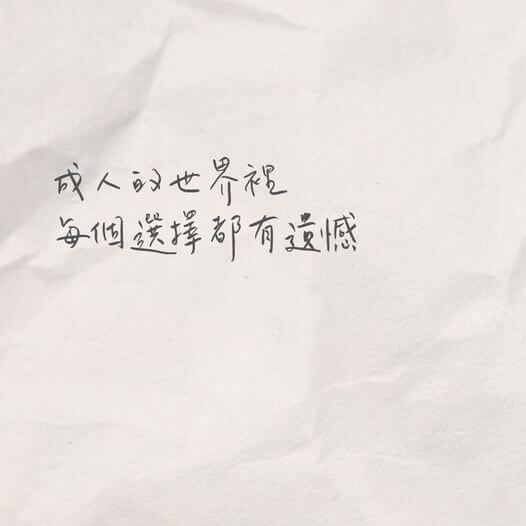 成人的世界裡
每個選擇都有遺憾